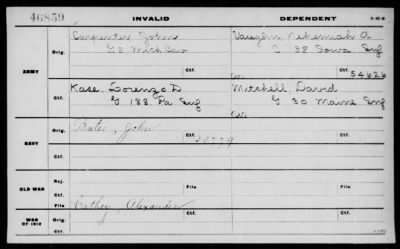 46859 INVALID DEPENDENT
ARMY
Orig. Carpenter, Vaughn, Nehemiah A.
G 2 Mich Cav C 38 Iowa Inf
Ctf. 54626
Ctf. Kase, Lorenzo D Mitchell, David
G 188 Pa Inf G 30 Maine Inf
NAVY
Orig. John Orig.
Ctf. Ctf.
OLD WAR
Rej.
Ctf. File File
WAR OF 1812
Cathey, Alexander Ctf.